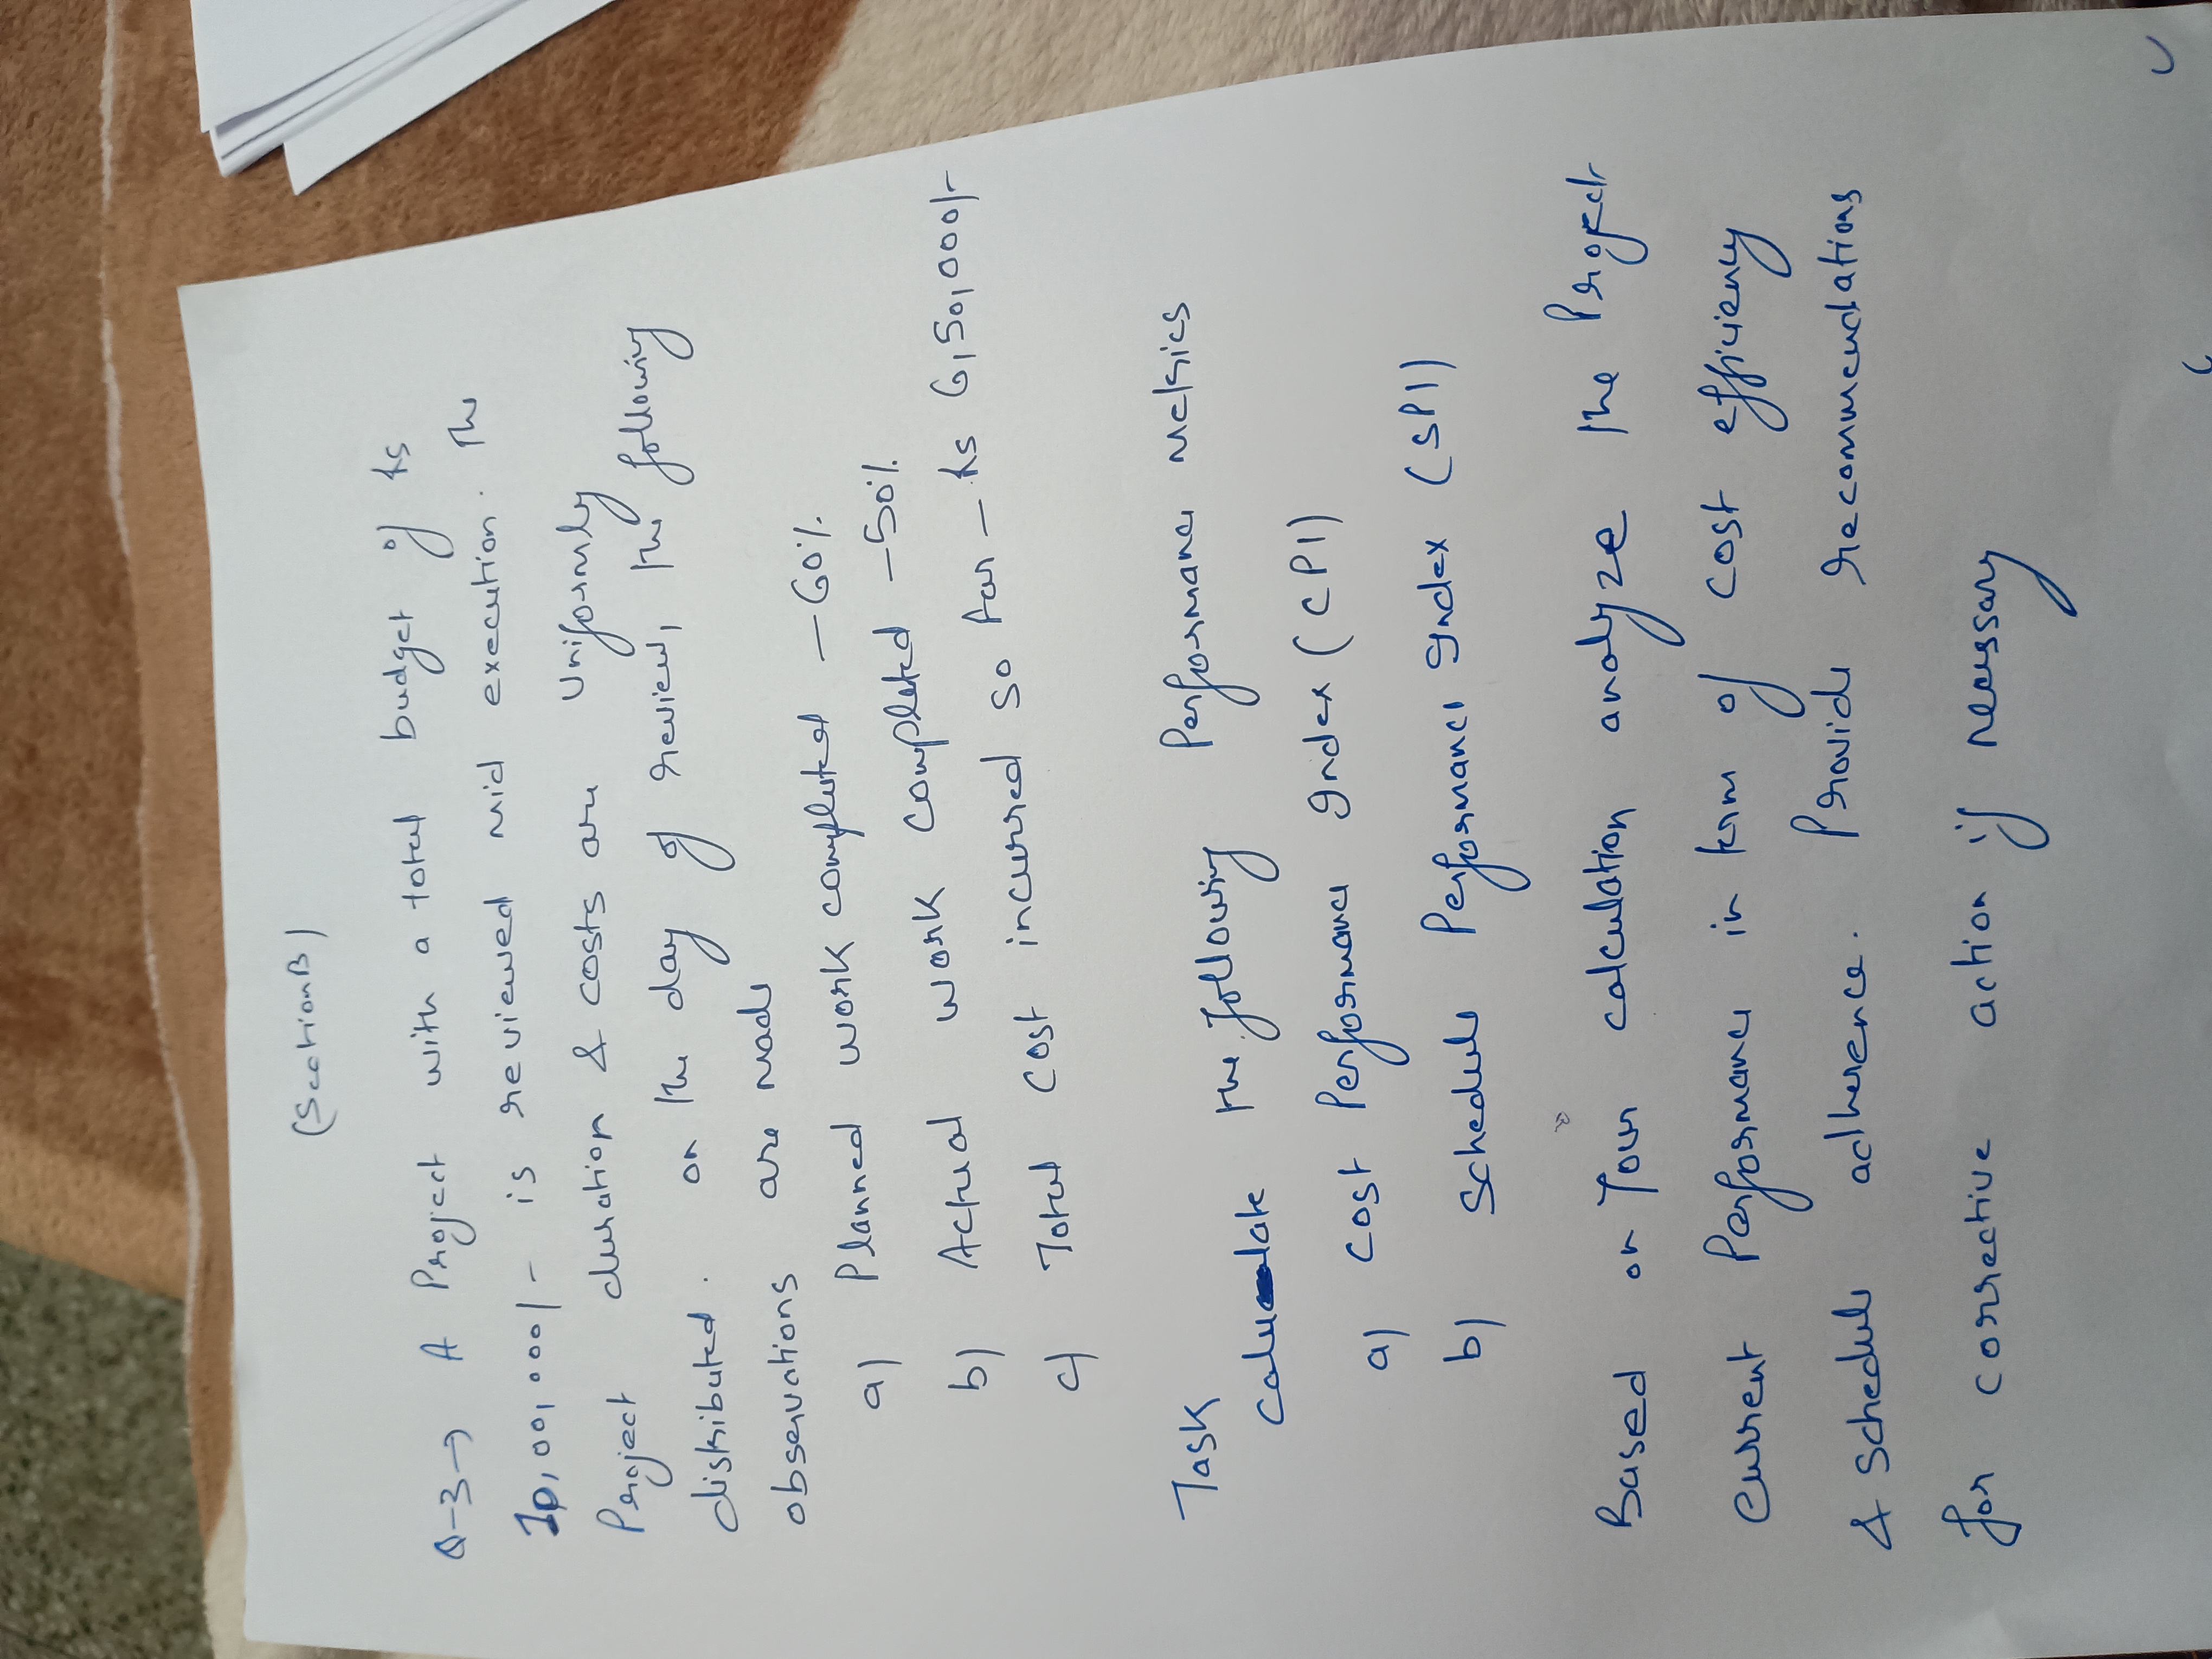 (Section B)
Q-3→ A Project with a total budget of Rs
10,00,000/- is reviewed mid execution. The
Project duration & costs are Uniformly
distributed. on the day of review, the following
observations are made
a) Planned work completed - 60%
b) Actual work completed - 50%
c) Total cost incurred so far - Rs 6,50,000/-
Task
Calculate the following Performance metrics
a) Cost Performance Index (CPI)
b) Schedule Performance Index (SPI)
Based on Your calculation analyze the Project
Current Performance in term of cost efficiency
& schedule adherence. Provide recommendations
for corrective action if necessary